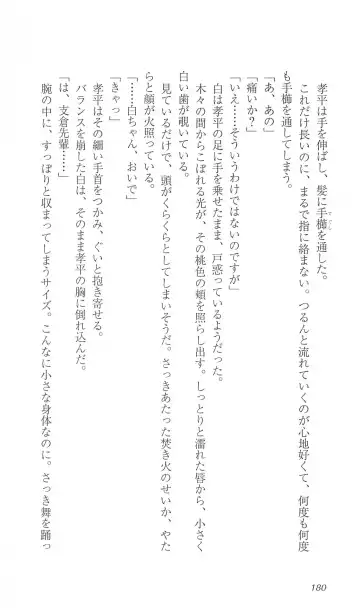 孝平は手を伸ばし、髪に手櫛を通した。
てぐし
これだけ長いのに、まるで指に絡まない。つるんと流れていくのが心地好くて、何度も何度
も手櫛を通してしまう。
「あ、あの」
「痛いか?」
「いえ……そういうわけではないのですが」
白は孝平の足に手を乗せたまま、戸惑っているようだった。
木々の間からこぼれる光が、その桃色の頬を照らし出す。しっとりと濡れた唇から、小さく
白い歯が覗いている。
見ているだけで、頭がくらくらとしてしまいそうだ。さっきあたった焚き火のせいか、やた
らと顔が火照っている。
「……白ちゃん、おいで」
「きゃっ」
孝平はその細い手首をつかみ、ぐいと抱き寄せる。
バランスを崩した白は、そのまま孝平の胸に倒れ込んだ。
「は、支倉先輩……」
腕の中に、すっぽりと収まってしまうサイズ。こんなに小さな身体なのに。さっき舞を踊っ
180